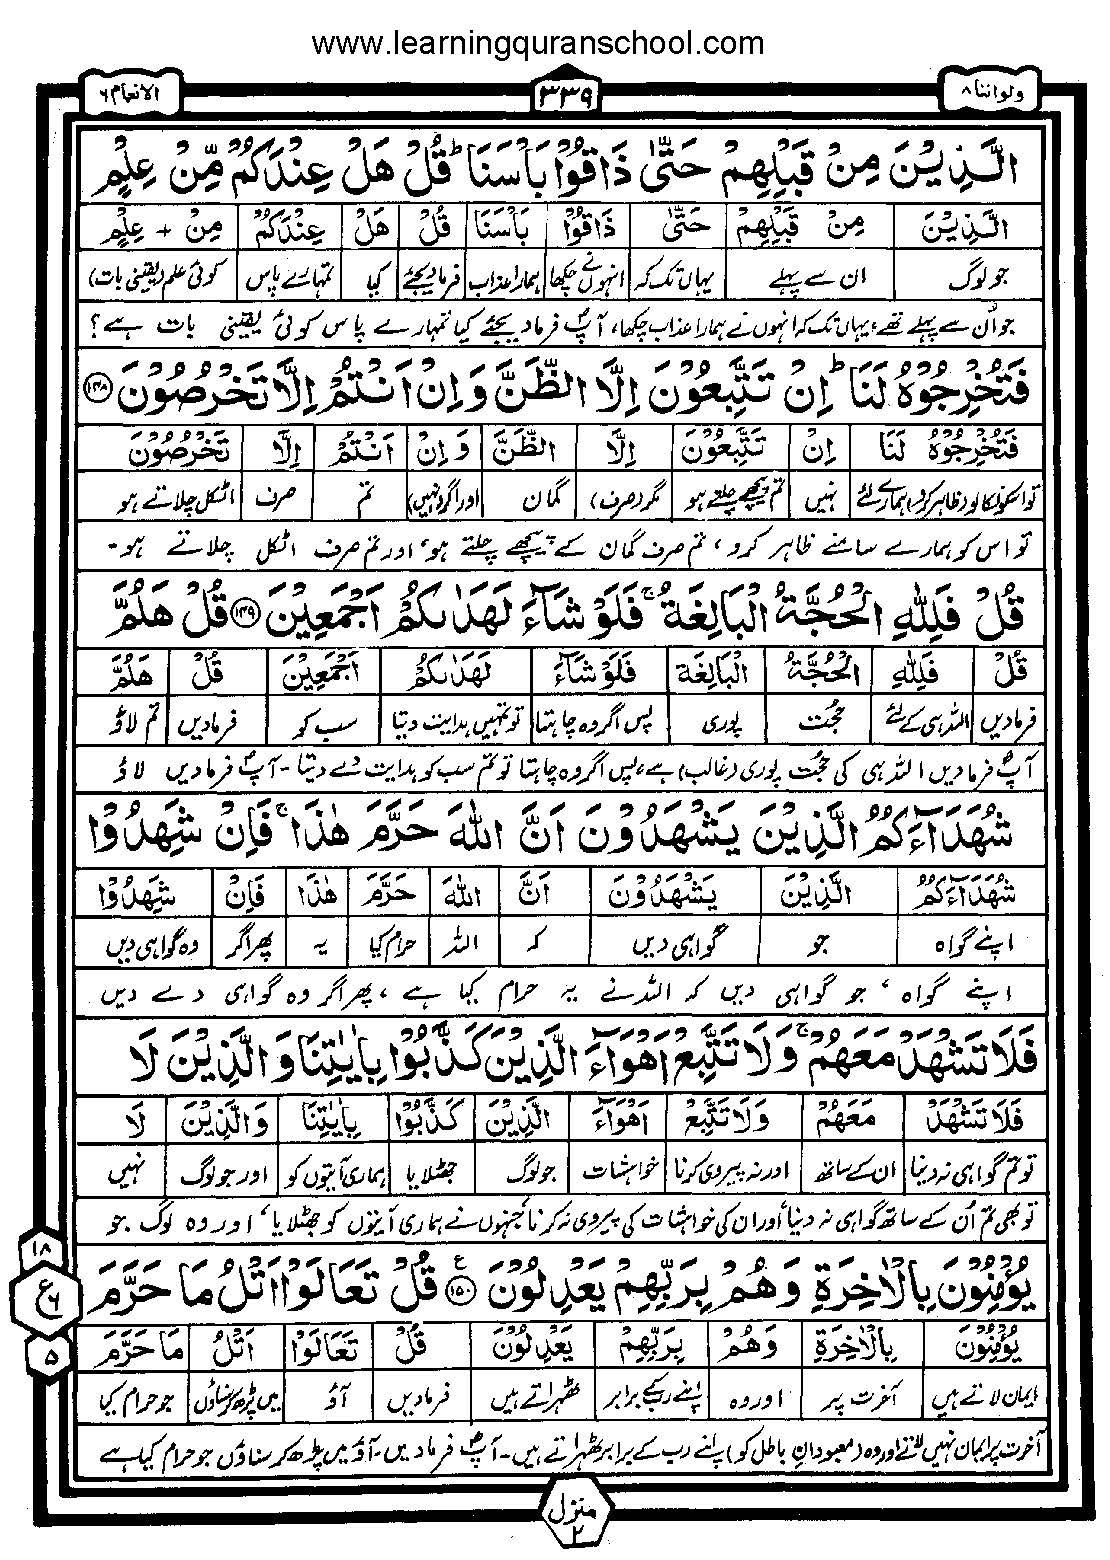 www.learningquranschool.com
ولواننا ۸ ۳۳۹ الانعام ۶
الَّذِيْنَ مِنْ قَبْلِهِمْ حَتّٰى ذَاقُوْا بَاْسَنَا ؕ قُلْ هَلْ عِنْدَكُمْ مِّنْ عِلْمٍ
الَّذِيْنَ مِنْ قَبْلِهِمْ حَتّٰى ذَاقُوْا بَاْسَنَا قُلْ هَلْ عِنْدَكُمْ مِنْ + عِلْمٍ
جو لوگ ان سے پہلے یہاں تک کہ انہوں نے چکھا ہمارا عذاب فرما دیجئے کیا تمہارے پاس کوئی علم (یقینی بات)
جو اُن سے پہلے تھے، یہاں تک کہ انہوں نے ہمارا عذاب چکھا، آپؐ فرما دیجئے کیا تمہارے پاس کوئی یقینی بات ہے؟
فَتُخْرِجُوْهُ لَنَا ؕ اِنْ تَتَّبِعُوْنَ اِلَّا الظَّنَّ وَاِنْ اَنْتُمْ اِلَّا تَخْرُصُوْنَ ۱۴۸
فَتُخْرِجُوْهُ لَنَا اِنْ تَتَّبِعُوْنَ اِلَّا الظَّنَّ وَاِنْ اَنْتُمْ اِلَّا تَخْرُصُوْنَ
تو اسکو نکالو (ظاہر کرو) ہمارے لئے نہیں تم پیچھے چلتے ہو مگر (صرف) گمان اور اگر (نہیں) تم صرف اٹکل چلاتے ہو
تو اس کو ہمارے سامنے ظاہر کرو، تم صرف گمان کے پیچھے چلتے ہو، اور تم صرف اٹکل چلاتے ہو۔
قُلْ فَلِلّٰهِ الْحُجَّةُ الْبَالِغَةُ ۚ فَلَوْ شَآءَ لَهَدٰىكُمْ اَجْمَعِيْنَ ۱۴۹ قُلْ هَلُمَّ
قُلْ فَلِلّٰهِ الْحُجَّةُ الْبَالِغَةُ فَلَوْ شَآءَ لَهَدٰىكُمْ اَجْمَعِيْنَ قُلْ هَلُمَّ
فرمادیں اللہ ہی کے لئے حجت پوری پس اگر وہ چاہتا تو تمہیں ہدایت دیتا سب کو فرمادیں تم لاؤ
آپؐ فرمادیں اللہ ہی کی حجت پوری (غالب) ہے، پس اگر وہ چاہتا تو تم سب کو ہدایت دے دیتا۔ آپؐ فرمادیں لاؤ
شُهَدَآءَكُمُ الَّذِيْنَ يَشْهَدُوْنَ اَنَّ اللّٰهَ حَرَّمَ هٰذَا ۚ فَاِنْ شَهِدُوْا
شُهَدَآءَكُمُ الَّذِيْنَ يَشْهَدُوْنَ اَنَّ اللّٰهَ حَرَّمَ هٰذَا فَاِنْ شَهِدُوْا
اپنے گواہ جو گواہی دیں کہ اللہ حرام کیا یہ پھر اگر وہ گواہی دیں
اپنے گواہ، جو گواہی دیں کہ اللہ نے یہ حرام کیا ہے، پھر اگر وہ گواہی دے دیں
فَلَا تَشْهَدْ مَعَهُمْ ۚ وَلَا تَتَّبِعْ اَهْوَآءَ الَّذِيْنَ كَذَّبُوْا بِاٰيٰتِنَا وَالَّذِيْنَ لَا
فَلَا تَشْهَدْ مَعَهُمْ وَلَا تَتَّبِعْ اَهْوَآءَ الَّذِيْنَ كَذَّبُوْا بِاٰيٰتِنَا وَالَّذِيْنَ لَا
تو تم گواہی نہ دینا ان کے ساتھ اور نہ پیروی کرنا خواہشات جو لوگ جھٹلایا ہماری آیتوں کو اور جو لوگ نہیں
تو بھی تم اُن کے ساتھ گواہی نہ دینا اور ان کی خواہشات کی پیروی نہ کرنا جنہوں نے ہماری آیتوں کو جھٹلایا، اور وہ لوگ جو
يُؤْمِنُوْنَ بِالْاٰخِرَةِ وَهُمْ بِرَبِّهِمْ يَعْدِلُوْنَ ۱۵۰ ع قُلْ تَعَالَوْا اَتْلُ مَا حَرَّمَ
يُؤْمِنُوْنَ بِالْاٰخِرَةِ وَهُمْ بِرَبِّهِمْ يَعْدِلُوْنَ قُلْ تَعَالَوْا اَتْلُ مَا حَرَّمَ
ایمان لاتے ہیں آخرت پر اور وہ اپنے رب کے برابر ٹھہراتے ہیں فرمادیں آؤ میں پڑھ کر سناؤں جو حرام کیا
آخرت پر ایمان نہیں لاتے اور وہ (معبودانِ باطل کو) اپنے رب کے برابر ٹھہراتے ہیں۔ آپؐ فرمادیں۔ آؤ میں پڑھ کر سناؤں جو حرام کیا ہے
۱۸
ع ۶
۵
منزل ۲